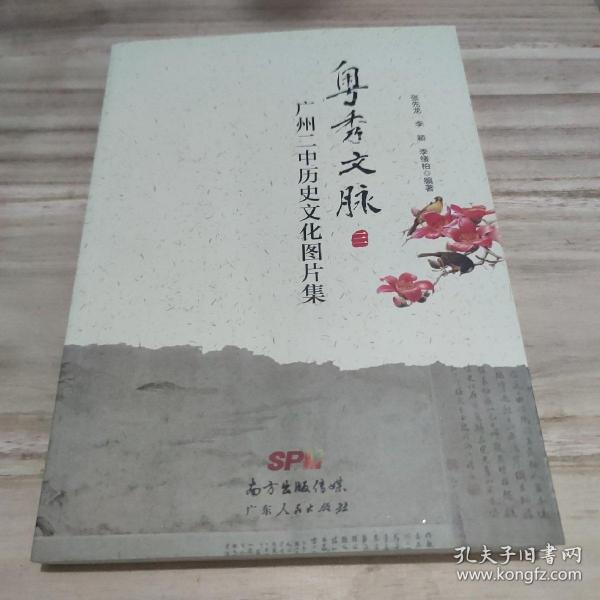 粤秀文脉 三
广州二中历史文化图片集
张先龙 李颖 李绪柏◎编著
SPM
南方出版传媒
广东人民出版社
孔夫子旧书网
www.kongfz.com